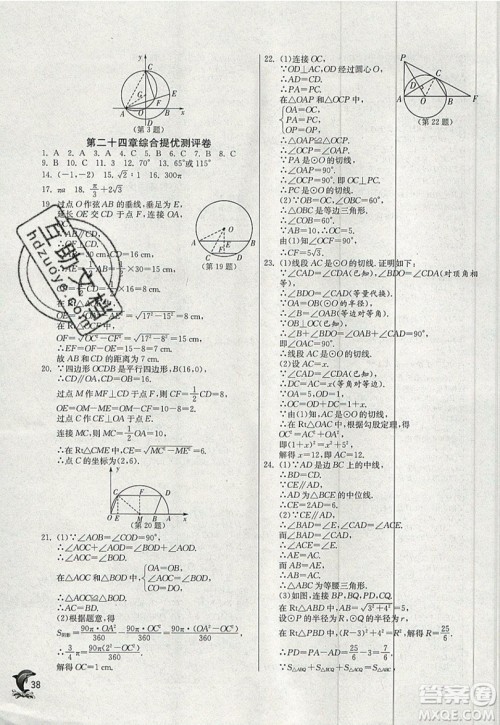 (第3题)
第二十四章综合提优测评卷
1. A 2. A 3. A 4. C 5.
9. B 10. C 11. A 12. 13. 65°或115°
14. (-1,-2) 15. √2∶1 16. 300π
17. 18. π/3+2√3
19. 过点O作弦AB的垂线,垂足为E,
(第19题)
AB∥CD,
=30 cm,CD=16 cm,
×30=15(cm),
×16=8(cm).
=√17²-15²=8(cm),
OF=√17²-8²=15(cm).
∴EF=OF-OE=15-8=7(cm),
故AB和CD的距离为7 cm.
20. ∵四边形OCDB是平行四边形,B(16,0)
过点M作MF⊥CD于点F,则CF=1/2CD=8
过点C作CE⊥OA于点E.
∵A(20,0),
OE=OM-ME=OM-CF=10-8=2.
连接MC,则MC=1/2OA=10.
∴在Rt△CME中,CE=√MC²-ME²=6.
∴点C的坐标为(2,6).
(第20题)
21. (1)∵∠AOB=∠COD=90°,
∴∠AOC+∠AOD=∠BOD+∠AOD.
∴∠AOC=∠BOD.
在△AOC和△BOD中,{OA=OB,
∠AOC=∠BOD,
CO=DO,
∴△AOC≌△BOD.
∴AC=BD.
(2)根据题意,得
S阴影=90π·OA²/360-90π·OC²/360=90π(OA²-OC²)/360,
∴3/4π=90π(2²-OC²)/360.
解得OC=1 cm.
38
22. (1)连接OC,
∵OD⊥AC,OD经过圆心O,
∴AD=CD.
∴PA=PC.
在△OAP和△OCP中,
{OA=OC,
PA=PC,
OP=OP,
∴△OAP≌△OCP.
∴∠OCP=∠OAP.
∵PA是⊙O的切线,
∴∠OAP=90°.
∴∠OCP=90°,
即OC⊥PC.
∴PC是⊙O的切线.
(2)∵OB=OC,∠OBC=60°,
∴△OBC是等边三角形.
∴∠COB=60°.
∵AB=10,
∴OC=5.
由(1)知∠OCF=90°,
∴CF=5√3.
(第22题)
23. (1)线段AC是⊙O的切线.证明如下:
∵∠CAD=∠CDA(已知),∠BDO=∠CDA(对顶角相等),
∴∠BDO=∠CAD(等量代换).
∵OA=OB,
∴∠OAB=∠B.
∵OB⊥OC,
∴∠B+∠BDO=∠OAB+∠CAD=90°,
∴∠OAC=90°.
∴线段AC是⊙O的切线.
(2)设AC=x.
∵∠CAD=∠CDA(已知),
∴CD=AC=x(等角对等边).
∵OA=5,OD=1,
∴OC=OD+DC=1+x.
∴在Rt△OAC中,根据勾股定理,得
OC²=AC²+OA²,
即(1+x)²=x²+5²,
解得x=12,即AC=12.
24. (1)∵AD是边BC上的中线,
∴BD=CD.
∵CE∥AD,
∴AD是△BCE的中位线.
∴CE=2AD=6.
(2)∵CE∥AD,
∴∠BAD=∠E,∠CAD=∠ACE.
∵∠BAD=∠CAD,
∴∠ACE=∠E.
∴AE=AC.
∵AB=AE,
∴AB=AC.
∴△ABC为等腰三角形.
(3)如图,连接BP,BQ,CQ,
在Rt△ABD中,AB=√3²+4²=5.
设⊙P的半径为R,⊙Q的半径为r.
在Rt△PBD中,(R-3)²+4²=R²,解得R=25/6,
∴PD=PA-AD=25/6-3=7/6.